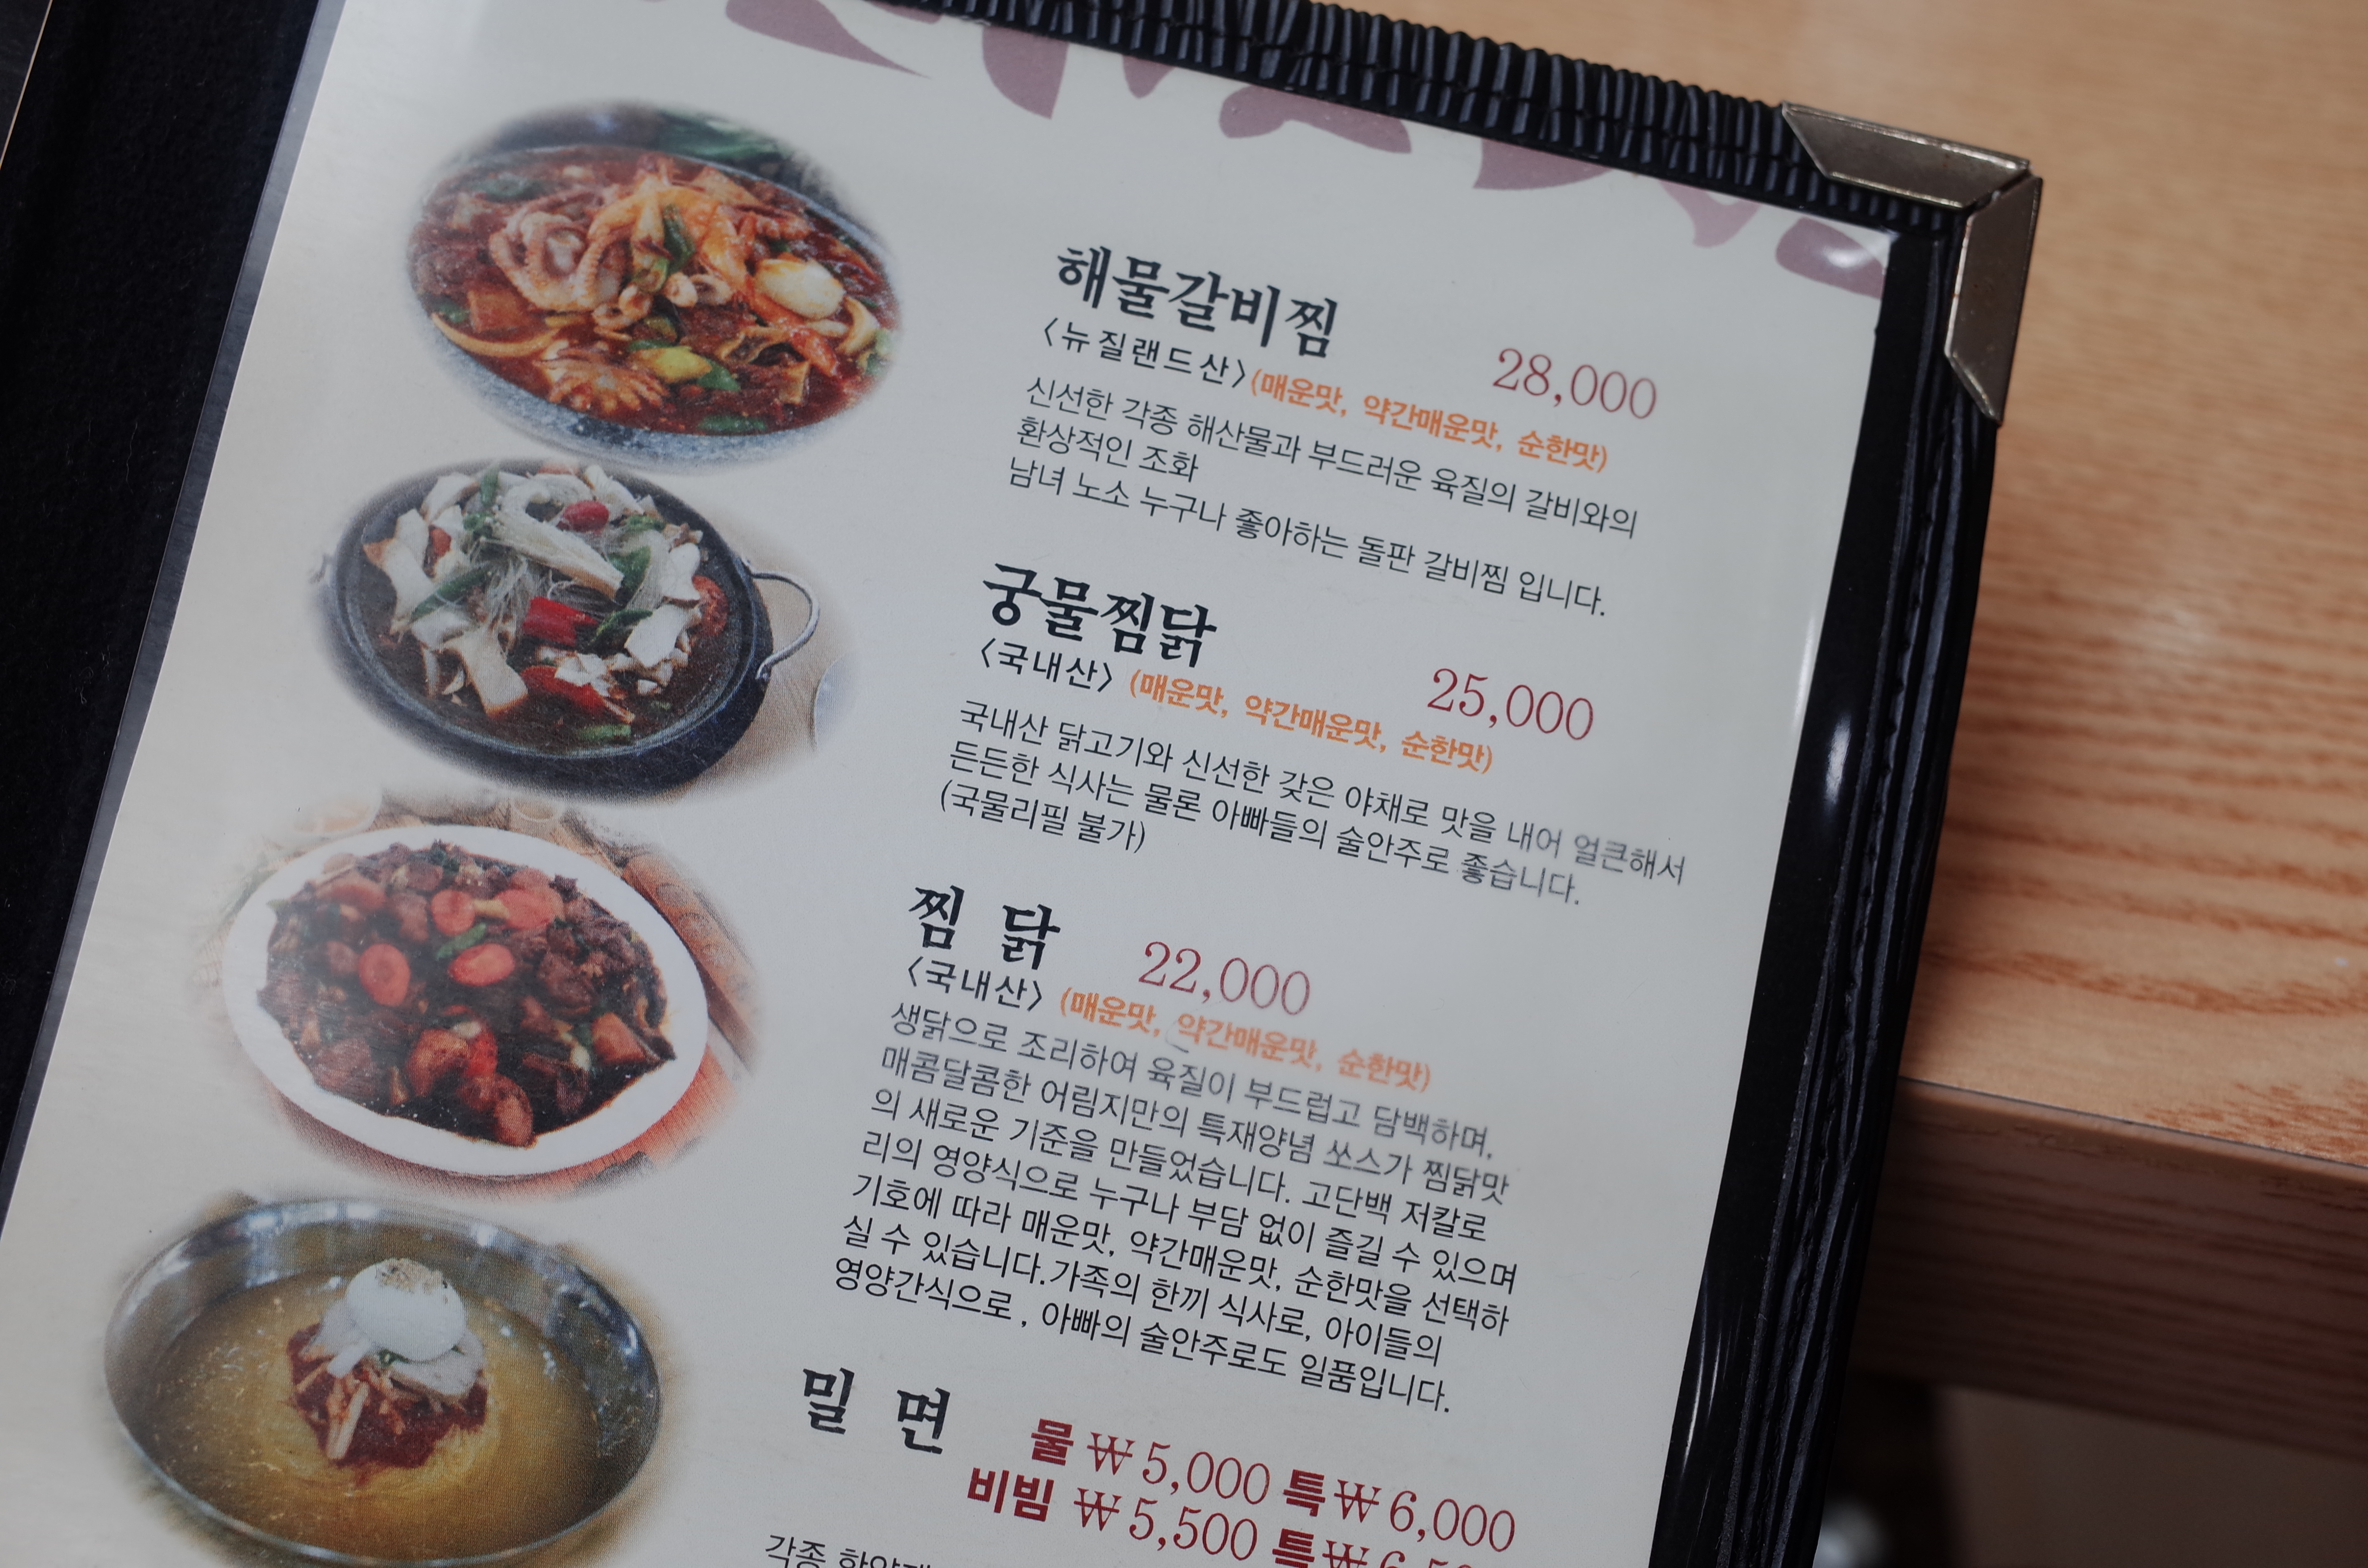 해물갈비찜
〈뉴질랜드산〉(매운맛, 약간매운맛, 순한맛)
28,000
신선한 각종 해산물과 부드러운 육질의 갈비와의
환상적인 조화
남녀 노소 누구나 좋아하는 돌판 갈비찜 입니다.
궁물찜닭
〈국내산〉 (매운맛, 약간매운맛, 순한맛)
25,000
국내산 닭고기와 신선한 갖은 야채로 맛을 내어 얼큰해서
든든한 식사는 물론 아빠들의 술안주로 좋습니다.
(국물리필 불가)
찜 닭
22,000
〈국내산〉 (매운맛, 약간매운맛, 순한맛)
생닭으로 조리하여 육질이 부드럽고 담백하며,
매콤달콤한 어림지만의 특재양념 쏘스가 찜닭맛
의 새로운 기준을 만들었습니다. 고단백 저칼로
리의 영양식으로 누구나 부담 없이 즐길 수 있으며
기호에 따라 매운맛, 약간매운맛, 순한맛을 선택하
실 수 있습니다.가족의 한끼 식사로, 아이들의
영양간식으로 , 아빠의 술안주로도 일품입니다.
밀 면
물 ₩5,000 특₩6,000
비빔 ₩5,500 특₩
각종